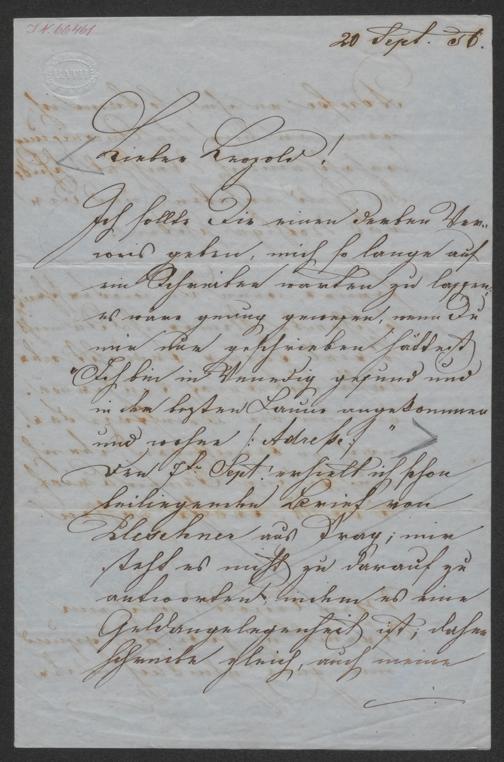 I.N. 66461
BATH
20 Sept. 56.
Lieber Leopold!
Ich sollte Dir einen derben Ver-
weis geben, mich so lange auf
ein Schreiben warten zu lassen;
es wäre genug gewesen, wenn Du
mir nur geschrieben hättest
"Ich bin in Venedig gesund und
in der besten Laune angekommen
und wohne /: Adresse :/ "
Den 7t. Sept. erhielt ich schon
beiliegenden Brief von
Pleschner aus Prag; mir
steht es nicht zu darauf zu
antworten, indem es eine
Geldangelegenheit ist; daher
schreibe gleich, auch meine